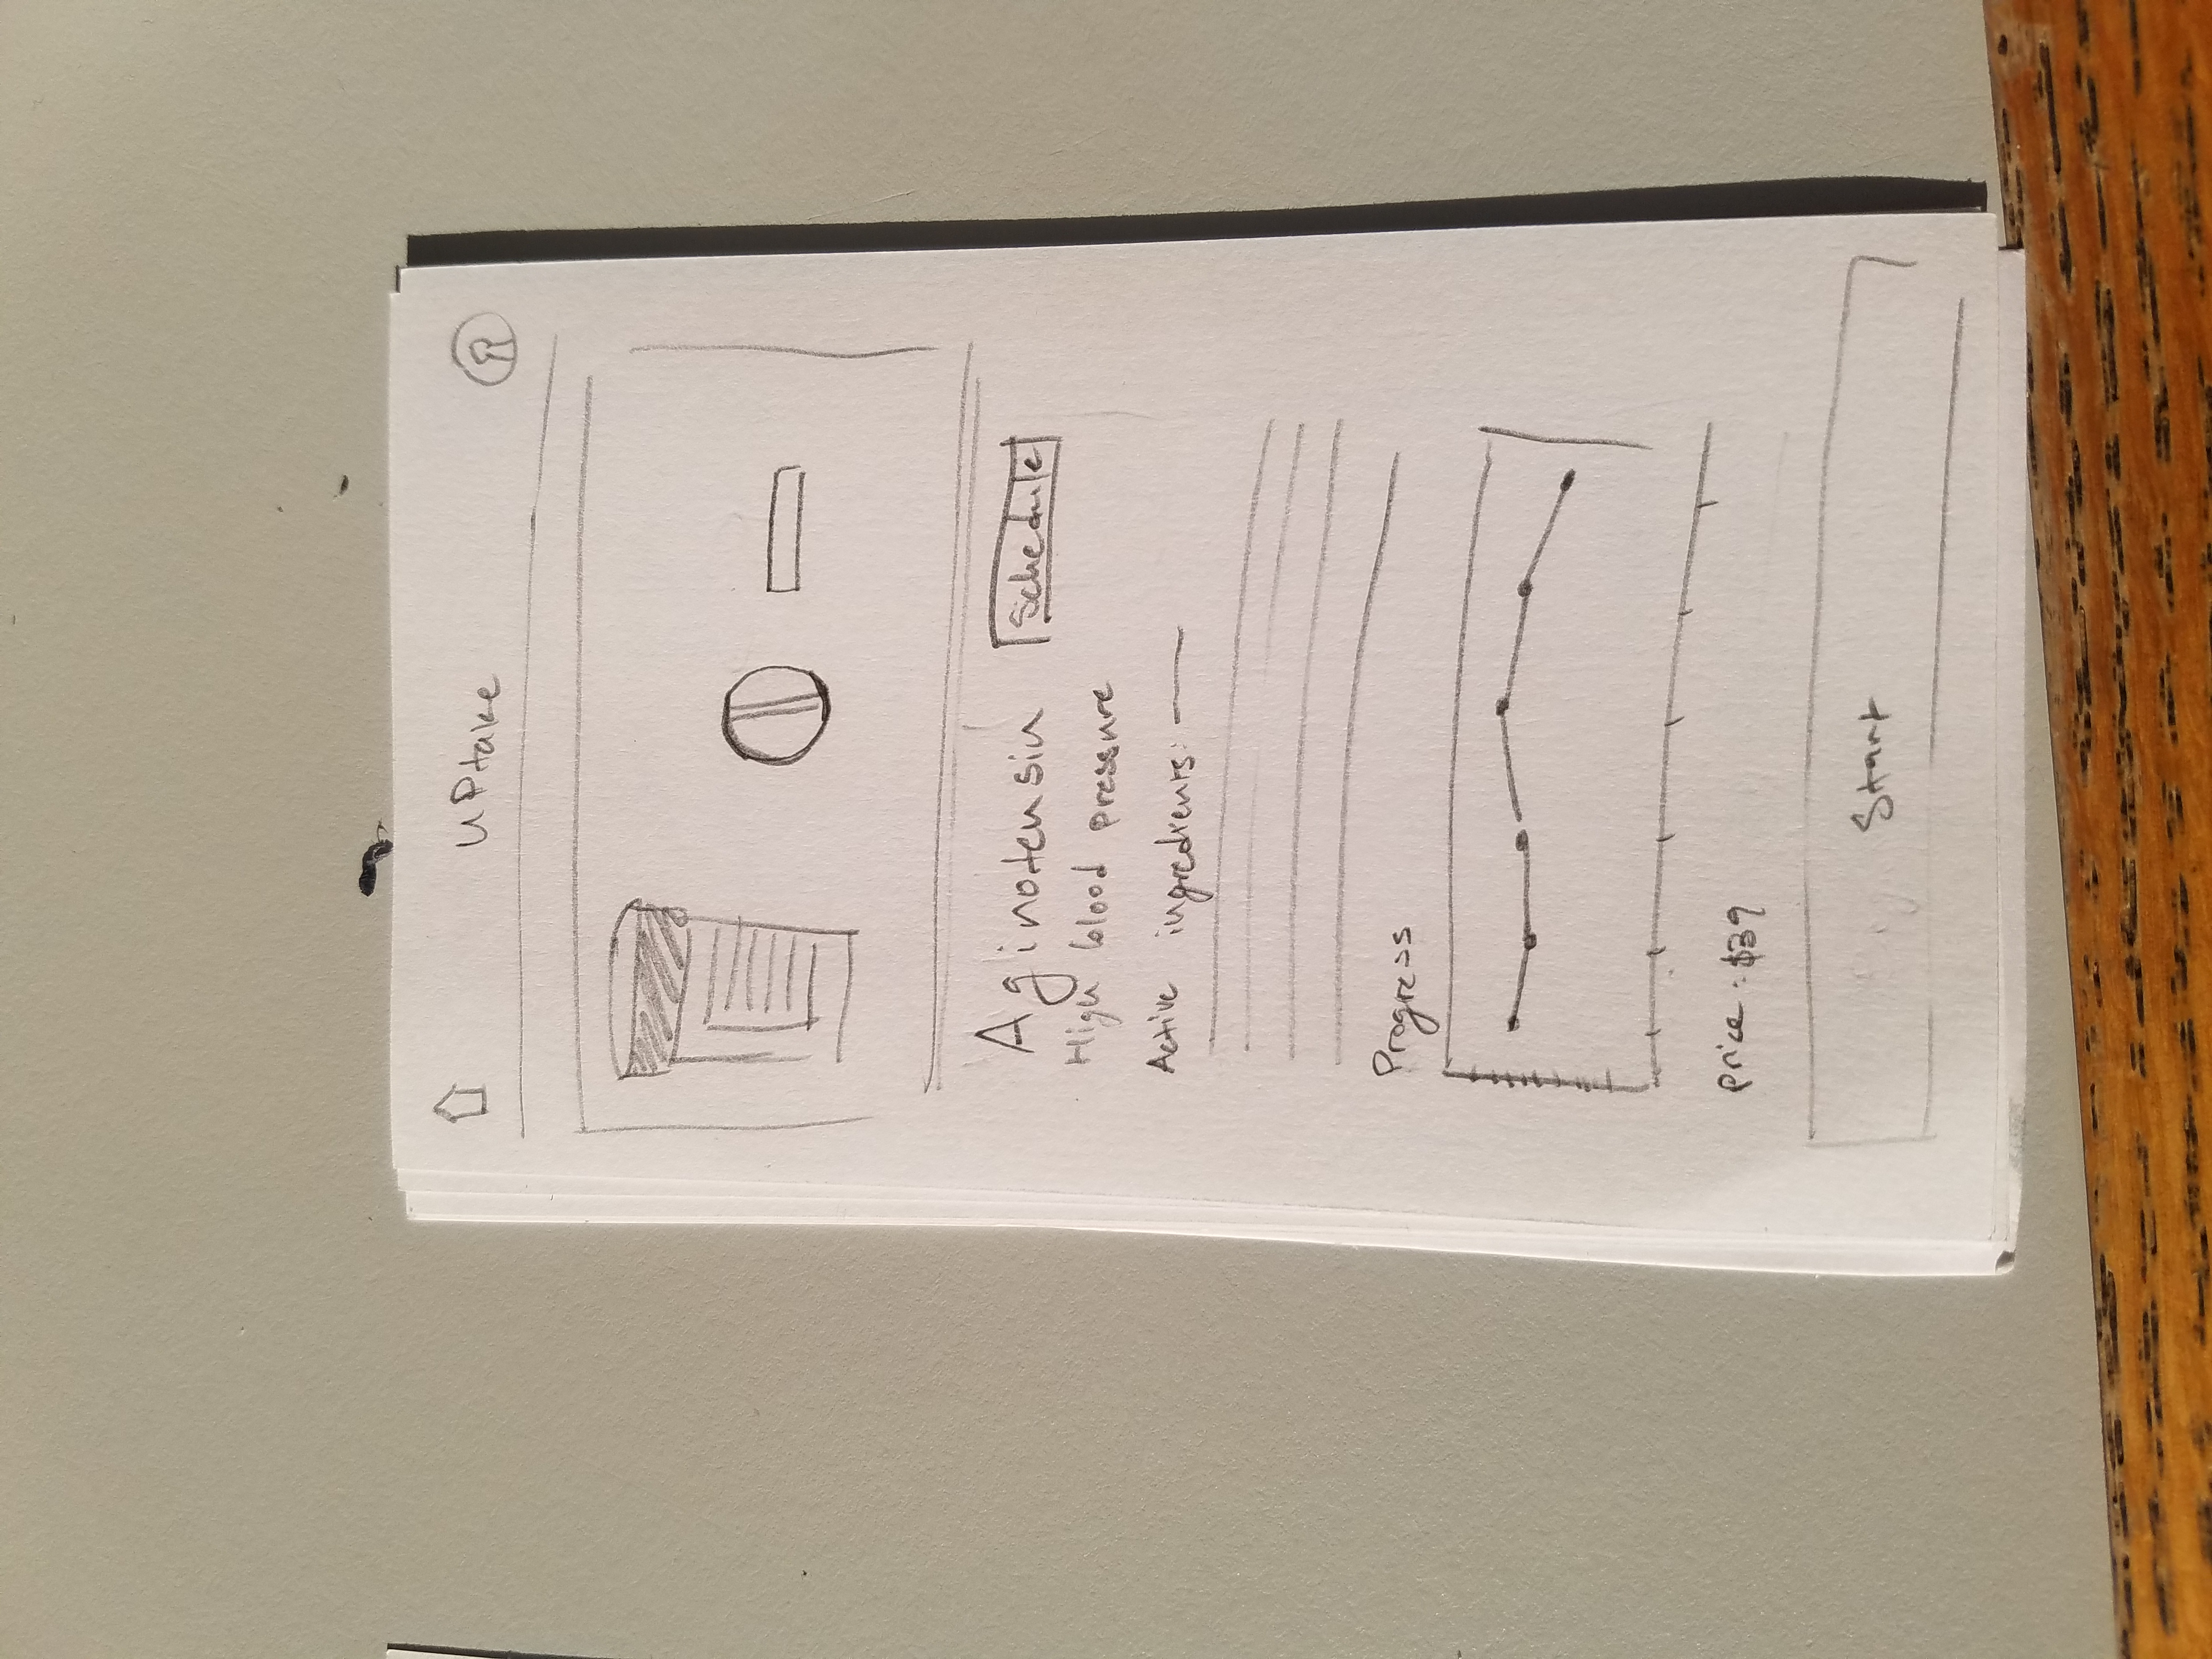 UPtake
Aginotensin
Schedule
High blood pressure
Active ingredients:
Progress
price: $39
Start